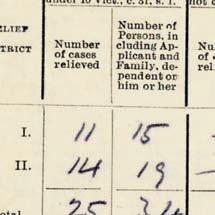 under 10 Vict., c. 31, s. 1.
ELIEF
TRICT
Number
of cases
relieved
Number of
Persons, in
cluding Ap-
plicant and
Family, de-
pendent or
him or her
I. 11 15
II. 14 19
otal 25 34